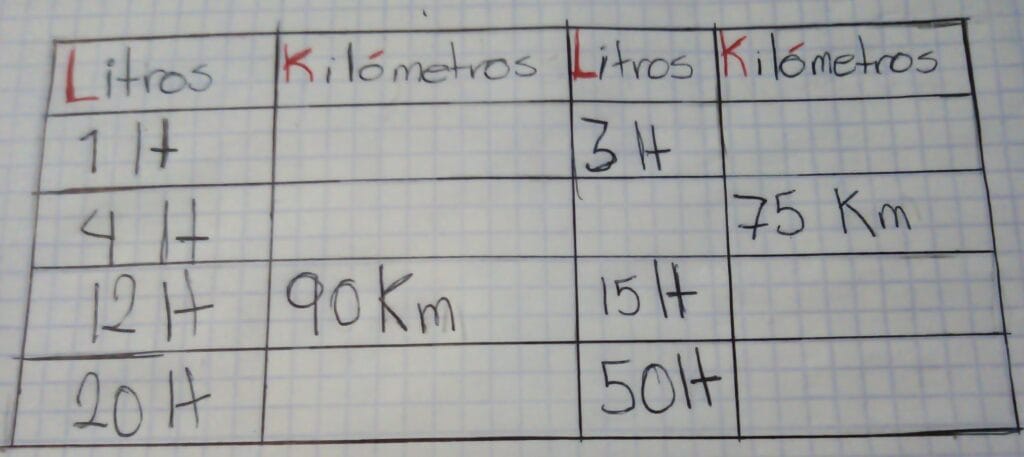 Litros Kilómetros Litros Kilómetros
1 lt 3 lt
4 lt 75 Km
12 lt 90 Km 15 lt
20 lt 50 lt